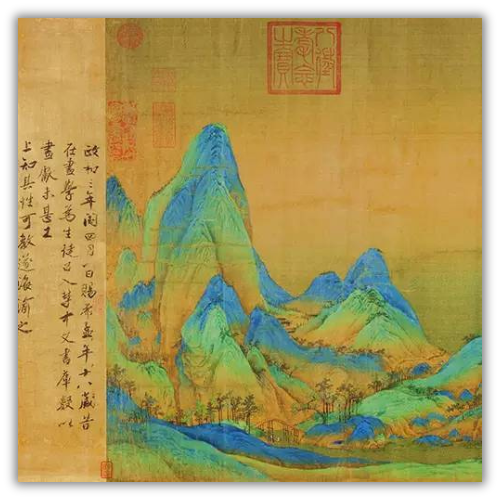 八徵耄念之寶
政和三年閏四月一日賜希孟年十八歲昔
在畫學為生徒召入禁中文書庫數以
畫獻未甚工
上知其性可教遂誨諭之